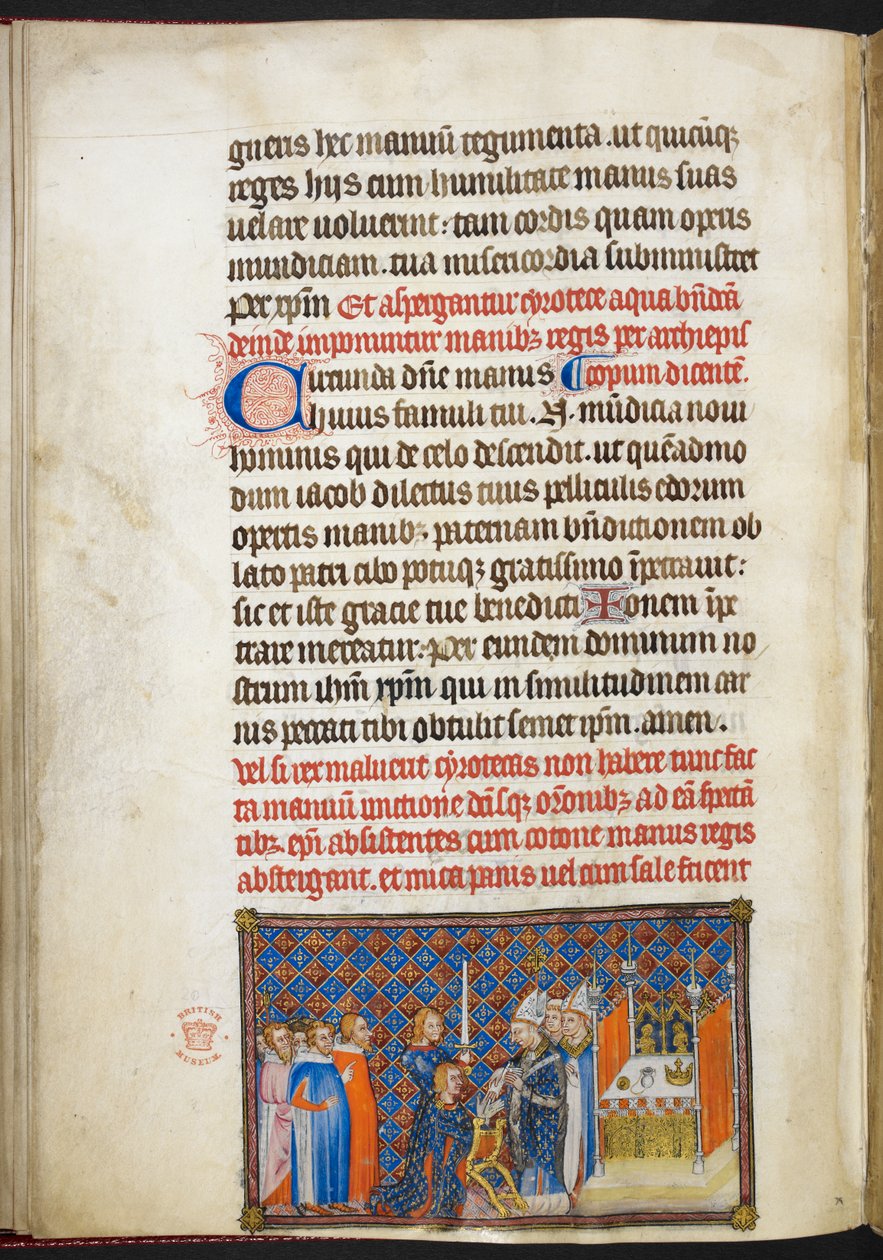 gneris hec manuū tegumenta . ut quicūqꝫ
reges hijs cum humilitate manus suas
uelare uoluerint : tam cordis quam operis
mundiciam . tua misericordia subministret
per xp̄m Et aspergantur cyrotece aqua bn̄dc̄a
deinde imponuntur manibꝫ regis per archiepis
Circunda dn̄e manus copum dicentē .
huius famuli tui . N . mūdicia noui
hominis qui de celo descendit . ut quēadmo
dum iacob dilectus tuus pelliculis edorum
opertis manibꝫ . paternam bn̄dictionem ob
lato patri cibo potuqꝫ gratissimo īpetrauit :
sic et iste gracie tue benedicti✠onem īpe
trare mereatur : Per eundem dominum no
strum ihm̄ xp̄m qui in similitudinem car
nis peccati tibi obtulit semet ip̄m . amen .
Vel si rex maluerit cyrotecas non habere tunc fac
ta manuū unctione dc̄isqꝫ or̄onibꝫ ad eā spectā
tibꝫ . ep̄i absistentes cum cotone manus regis
abstergant . et mica panis uel cum sale fricent
BRITISH
MUSEUM